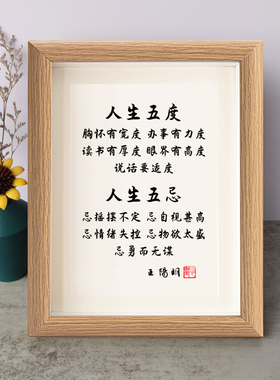 人生五度
胸怀有宽度 办事有力度
读书有厚度 眼界有高度
说话要适度
人生五忌
忌摇摆不定 忌自视甚高
忌情绪失控 忌物欲太盛
忌勇而无谋
王阳明